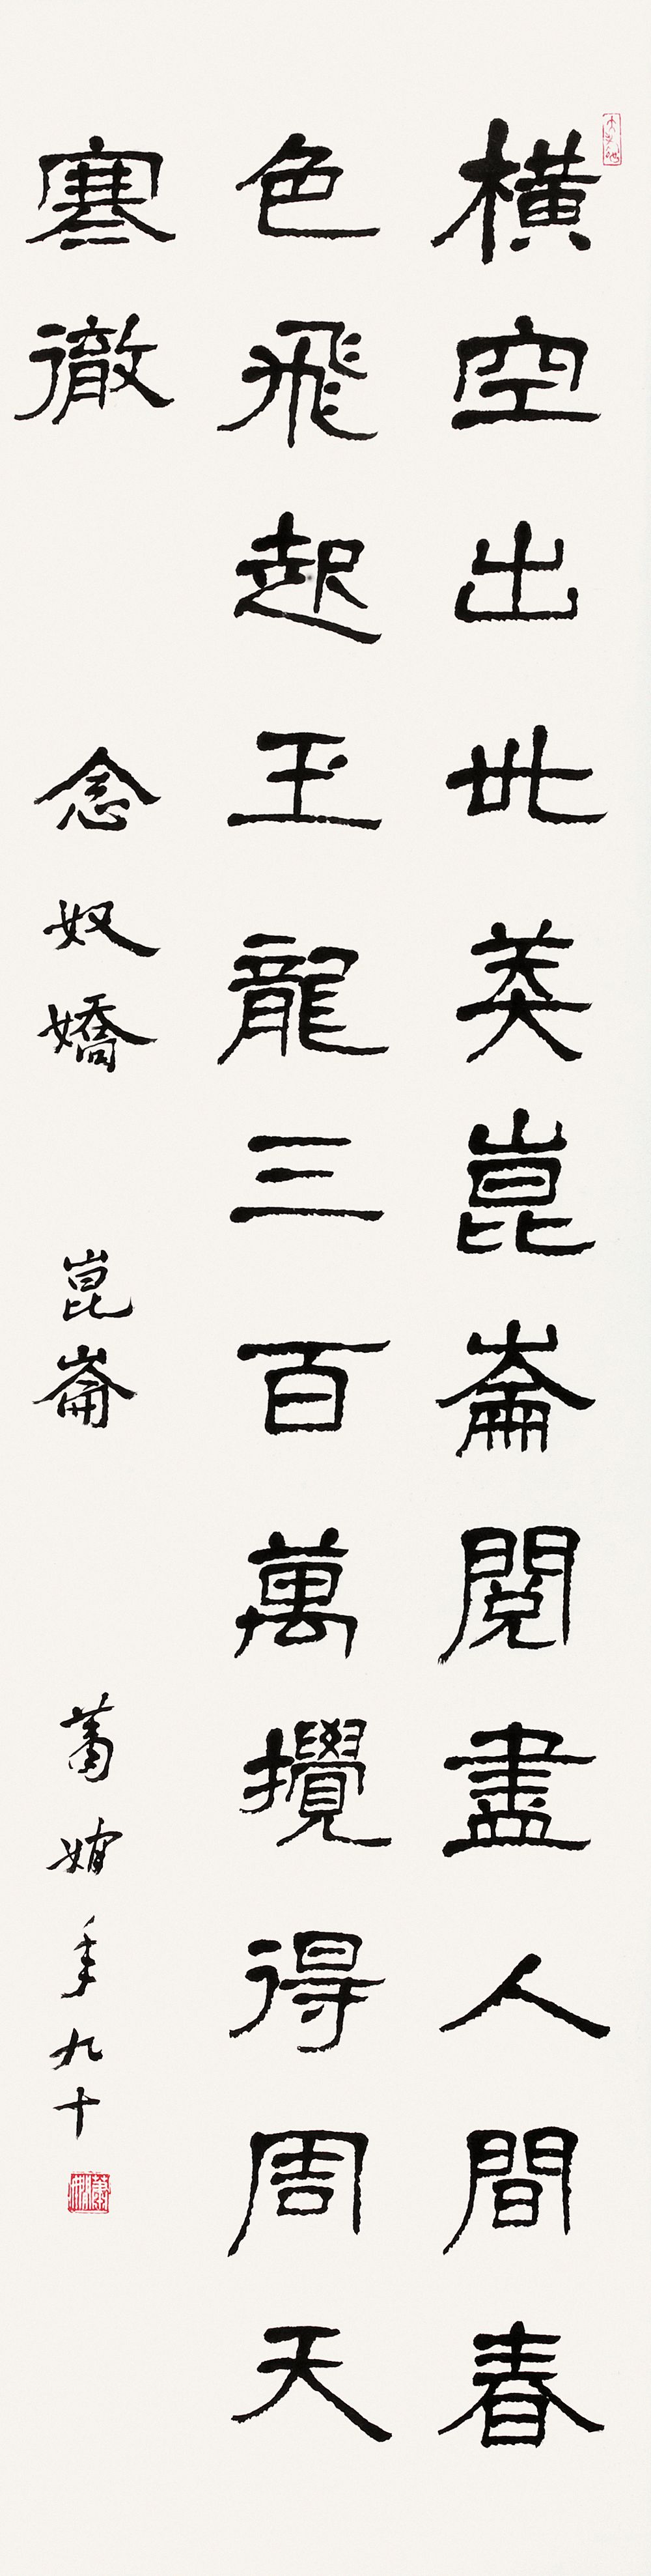 橫空出世莽崑崙閱盡人間春
色飛起玉龍三百萬攪得周天
寒徹 念奴嬌 崑崙 蕭嫻年九十